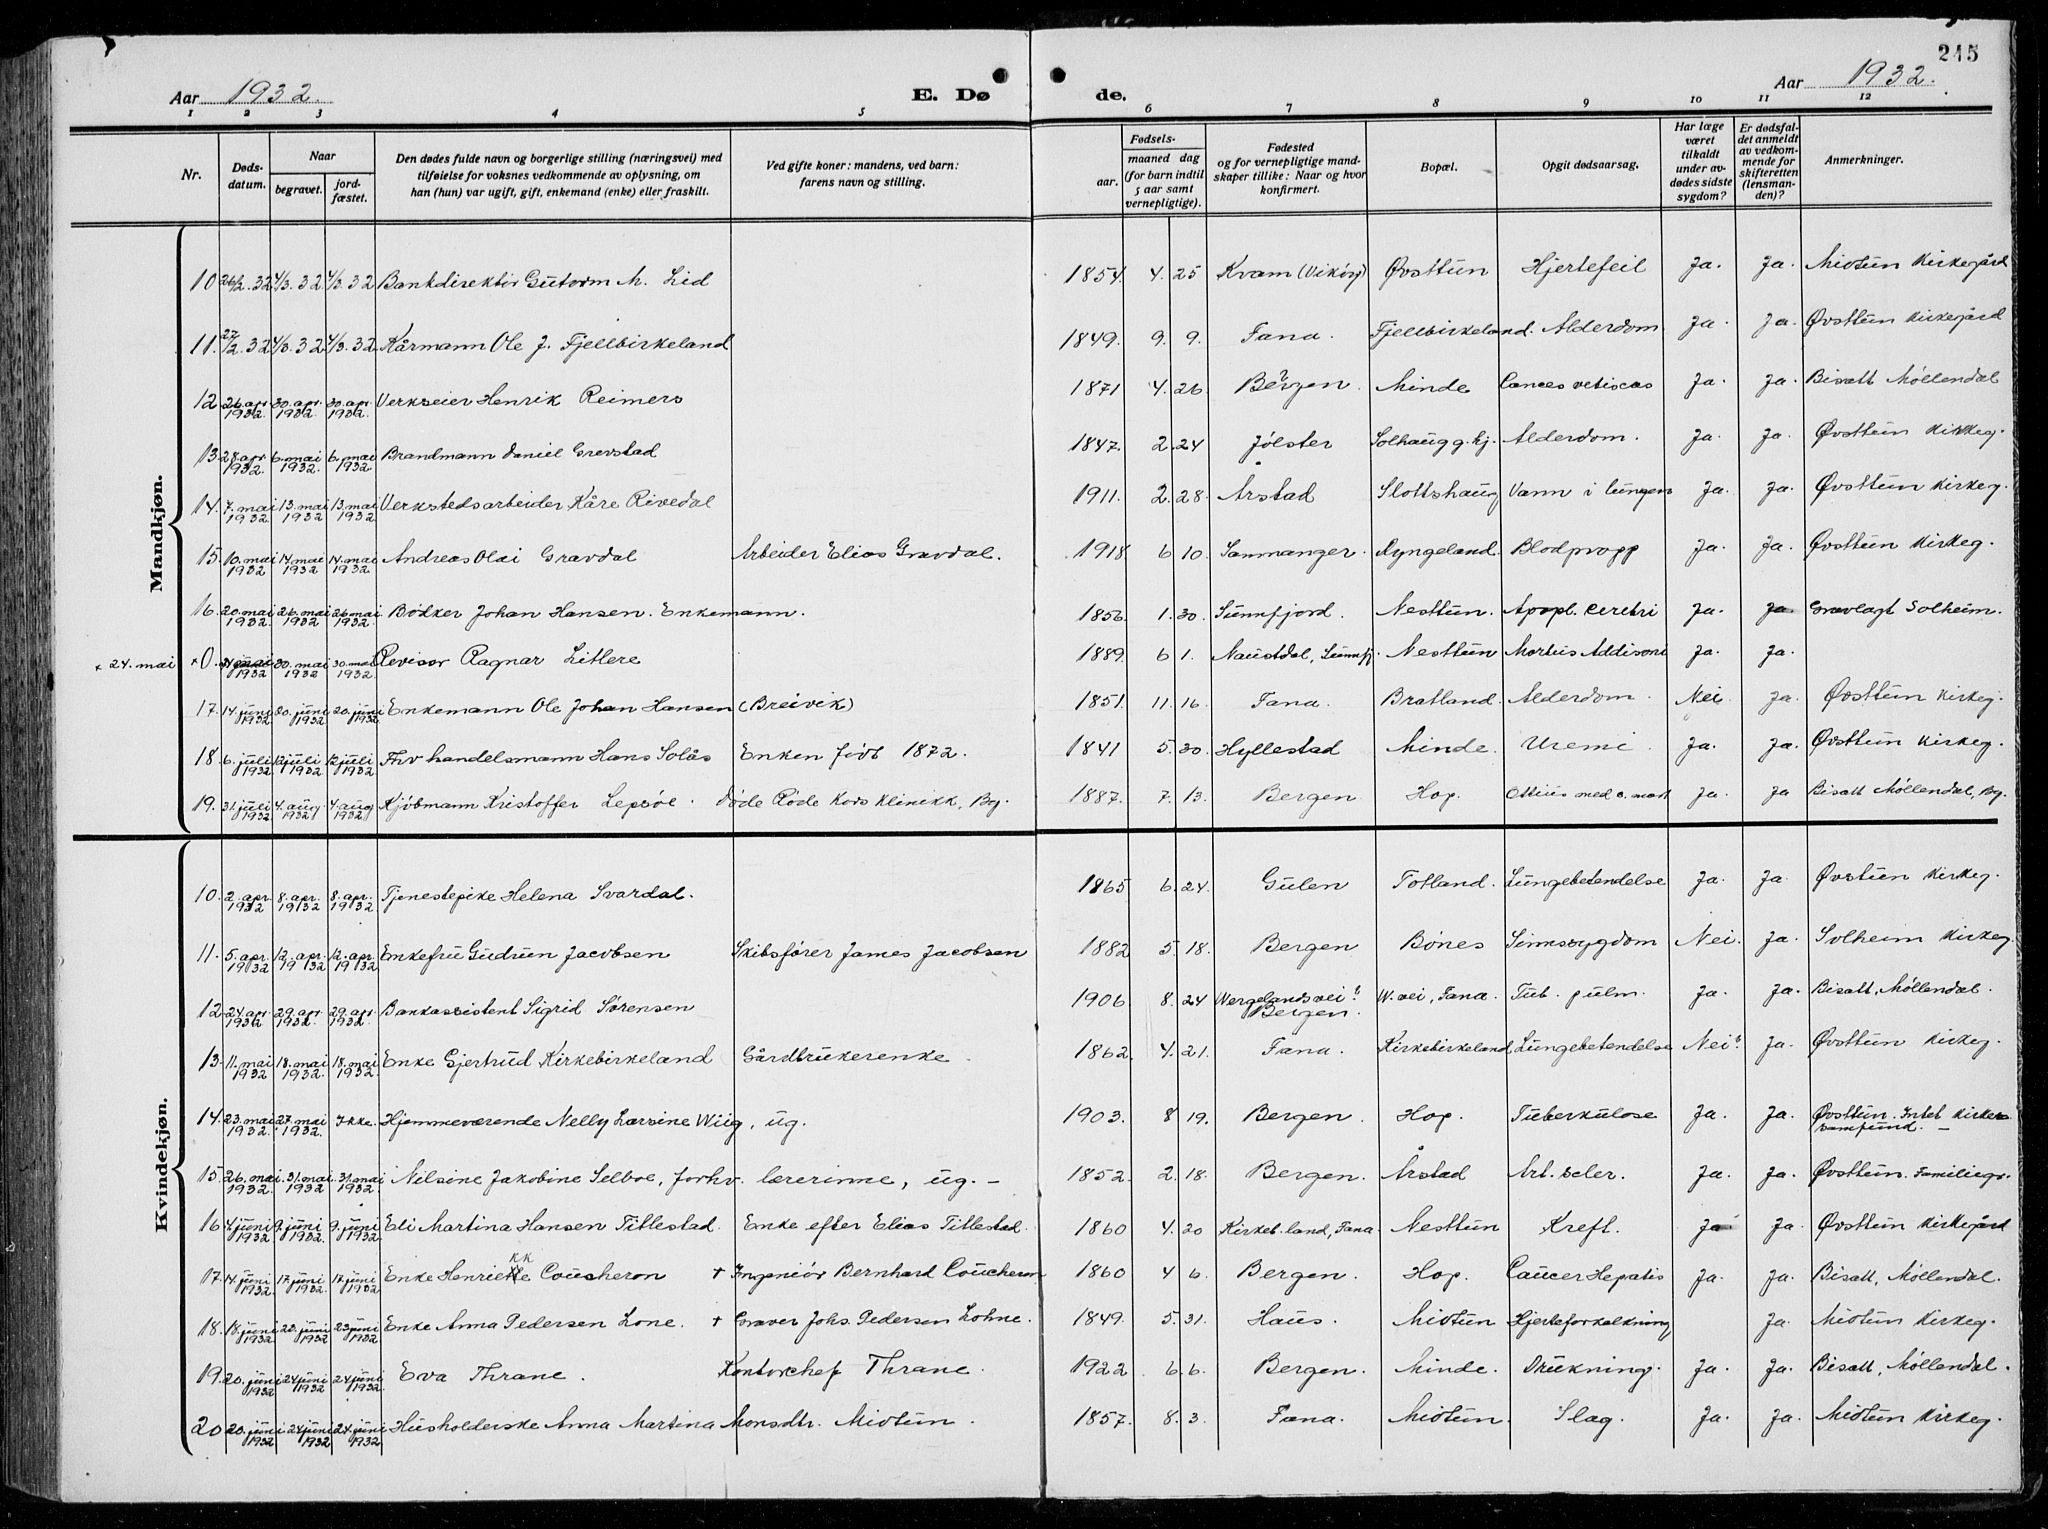 245
Aar 1932.
E. Dø
de.
Aar 1932.
1 2 3 4 5 6 7 8 9 10 11 12
Nr.
Døds-
datum.
Naar
begravet.
jord-
fæstet.
Den dødes fulde navn og borgerlige stilling (næringsvei) med
tilføielse for voksnes vedkommende av oplysning, om
han (hun) var ugift, gift, enkemand (enke) eller fraskilt.
Ved gifte koner: mandens, ved barn:
farens navn og stilling.
Fødsels-
aar.
maaned dag
(for barn indtil
5 aar samt
vernepligtige).
Fødested
og for vernepligtige mand-
skaper tillike: Naar og hvor
konfirmert.
Bopæl.
Opgit dødsaarsag.
Har læge
været
tilkaldt
under av-
dødes sidste
sygdom?
Er dødsfal-
det anmeldt
av vedkom-
mende for
skifteretten
(lensman-
den)?
Anmerkninger.
Mandkjøn.
10 26/2.32 4/3.32 4/3.32 Bankdirektør Gutorm M. Lid 1854. 4. 25 Kvam (Vikøy) Øvsttun Hjertefeil Ja. Ja. Midtun Kirkegård
11. 27/2.32 4/3.32 4/3.32 Kårmann Ole J. Fjellbirkeland 1849. 9. 9. Fana. Fjellbirkeland. Alderdom Ja. Ja. Øvsttun Kirkegård
12 26. apr. 1932. 30. apr. 1932 30. apr. 1932. Verkseier Henrik Reimers 1871 4. 26. Bergen. Minde Cances vetiscas Ja. Ja. Bisatt Møllendal
13 28. apr. 1932. 6. mai 1932. 6. mai 1932. Brandmann Daniel Grevstad 1847. 2. 24 Jølster Solhaug g.hj. Alderdom. Ja. Ja. Øvsttun Kirkeg.
14. 7. mai 1932 13. mai 1932 13. mai 1932 Verkstedsarbeider Kåre Rivedal 1911. 2. 28. Årstad Slottshaug Vann i lungen Ja. Ja. Øvsttun Kirkeg.
15. 10. mai 1932 14. mai 1932 14. mai 1932 Andreas Olai Gravdal Arbeider Elias Gravdal. 1918 6 10. Sammanger. Lyngeland. Blodpropp Ja. Ja. Øvsttun Kirkeg.
16. 20. mai 1932 26. mai 1932 26. mai 1932 Bødker Johan Hansen. Enkemann. 1856. 1. 30. Sunnfjord. Nesttun. Apopl. cerebri Ja. Ja. Gravlagt Solheim.
+ 24. mai + 0. 1932 30. mai 1932 30. mai 1932. Revisor Ragnar Litlere 1889. 6 1. Naustdal, Sunnfj. Nesttun Morbus Addisoni Ja. Ja.
17. 14. juni 1932 20. juni 1932 20. juni 1932 Enkemann Ole Johan Hansen (Breivik) 1851. 11. 16. Fana. Bratland. Alderdom. Nei Ja. Øvsttun Kirkeg.
18. 6. juli 1932 12 juli 1932 12 juli 1932 Fhv handelsmann Hans Solås Enken født 1872. 1841 5. 30. Hyllestad Minde. Uremi. Ja. Ja. Øvsttun Kirkeg.
19. 31. juli 1932. 4. aug 1932 4. aug 1932 Kjøbmann Kristoffer Lepsøe. Døde Røde Kors klinikk, Bg. 1887. 7. 13. Bergen. Hop. Ottius med a. mast Ja. Ja Bisatt Møllendal, Bg.
Kvindekjøn.
10. 2. apr. 1932 8. apr. 1932 8. apr. 1932 Tjenestepike Helena Svardal. 1865 6. 24. Gulen Totland. Lungebetendelse Ja. Ja. Øvstun Kirkeg.
11. 5. apr. 1932 12. apr. 1932 12. apr. 1932 Enkefru Gudrun Jacobsen Skibsfører James Jacobsen 1882 5. 18. Bergen Bønes Sinnssygdom Nei. Ja. Solheim Kirkeg.
12 24. apr. 1932 29. apr. 1932. 29. apr. 1932 Bankassistent Sigrid Sørensen 1906 8. 24 Wergelandsvei? Bergen. W. vei, Fana. Tub. pulm. Ja. Ja. Bisatt, Møllendal.
13. 11. mai 1932 18. mai 1932. 18. mai 1932 Enke Gjertrud Kirkebirkeland Gårdbrukerenke. 1862. 4. 21. Fana. Kirkebirkeland Lungebetendelse Nei? Ja. Øvsttun Kirkeg.
14. 23. mai 1932. 27. mai 1932. Ikke. Hjemmeværende Nelly Larsine Wiig, ug. 1903. 8 19. Bergen. Hop. Tuberkulose Ja. Ja. Øvsttun. Intet kirke-
samfund. —
15. 26. mai 1932. 31. mai 1932 31. mai 1932. Nilsine Jakobine Selboe, forhv. lærerinne, ug. — 1852. 2. 18. Bergen. Årstad Art. scler. Ja. Ja. Øvsttun. Familiegr.
16 4. juni 1932 9. juni 1932. 9. juni 1932 Eli Martina Hansen Titlestad. Enke efter Elias Titlestad. 1860 4. 20 Kirkeb.land, Fana. Nesttun Kreft. Ja Ja. Øvsttun Kirkegård
kk
17. 14. juni 1932. 17. juni 1932. 17. juni 1932. Enke Henrie Coucheron + Ingeniør Bernhard Coucheron 1860 4 6. Bergen. Hop. Caucer Hepatis Ja. Ja. Bisatt, Møllendal.
18. 18. juni 1932. 23. juni 1932 23 juni 1932 Enke Anna Pedersen Lone. + Graver Johs. Pedersen Lohne. 1849. 5. 31. Haus. Midtun Hjerteforkalkning Ja. Midtun Kirkeg.
19. 20. juni 1932 24 juni 1932 24 juni 1932. Eva Thrane. Kontorchef Thrane. 1922 6. 6. Bergen. Minde. Drukning. Ja. Ja. Bisatt, Møllendal.
20 20. juni 1932 24 juni 1932 24. juni 1932 Husholderske Anna Martina Monsdtr. Midtun. 1857. 8. 3. Fana. Midtun. Slag. Ja. Ja. Midtun Kirkeg.